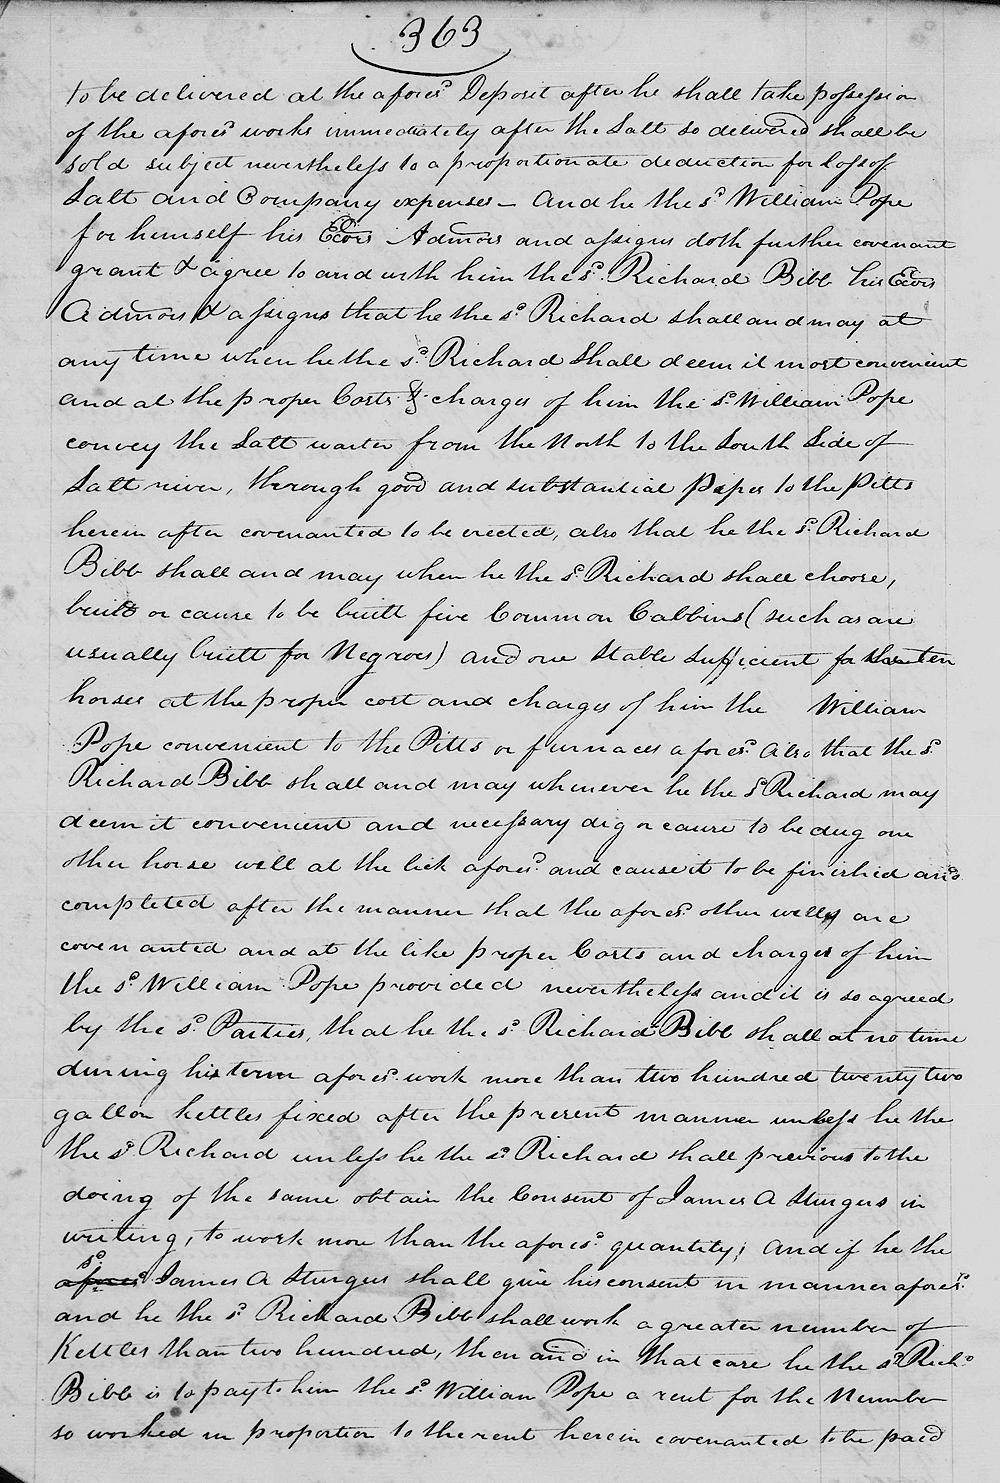 363
to be delivered at the afores.d Deposit after he shall take possession
of the afores.d works immediately after the Salt so delivered shall be
sold subject nevertheless to a proportionate deduction for loss of
Salt and Company expenses – And he the s.d William Pope
for himself his Exors Admors and assigns doth further covenant
grant & agree to and with him the s.d Richard Bibb his Exors
Admors & assigns that he the s.d Richard shall and may at
any time when he the s.d Richard Shall deem it most convenient
and at the proper Costs & charges of him the s.d William Pope
convey the Salt warter from the North to the South Side of
Salt river, through good and substantial Pipes to the Pitts
herein after covenanted to be erected, also that he the s.d Richard
Bibb shall and may when he the s.d Richard shall choose,
built or cause to be built five Common Cabbins (such as are
usually built for Negroes) and one Stable sufficient for ten
horses at the proper cost and charges of him the William
Pope convenient to the Pitts or furnaces afores.d Also that the s.d
Richard Bibb shall and may whenever he the s.d Richard may
deem it convenient and necessary dig or cause to be dug one
other horse well at the lick afores.d and cause it to be finished and
completed after the manner that the afores.d other wells are
covenanted and at the like proper Costs and charges of him
the s.d William Pope provided nevertheless and it is so agreed
by the s.d Parties, that he the s.d Richard Bibb shall at no time
during his term afores.d work more than two hundred twenty two
gallon kettles fixed after the present manner unless he the
the s.d Richard unless he the s.d Richard shall previous to the
doing of the same obtain the Consent of James A Sturges in
writing, to work more than the afores.d quantity; And if he the
s.d
afores.d James A Sturgus shall give his consent in manner afores.d
and he the s.d Richard Bibb shall work a greater number of
Kettles than two hundred, then and in that case he the s.d Rich.d
Bibb is to pay to him the s.d William Pope a rent for the Number
so worked in proportion to the rent herein covenanted to be paid